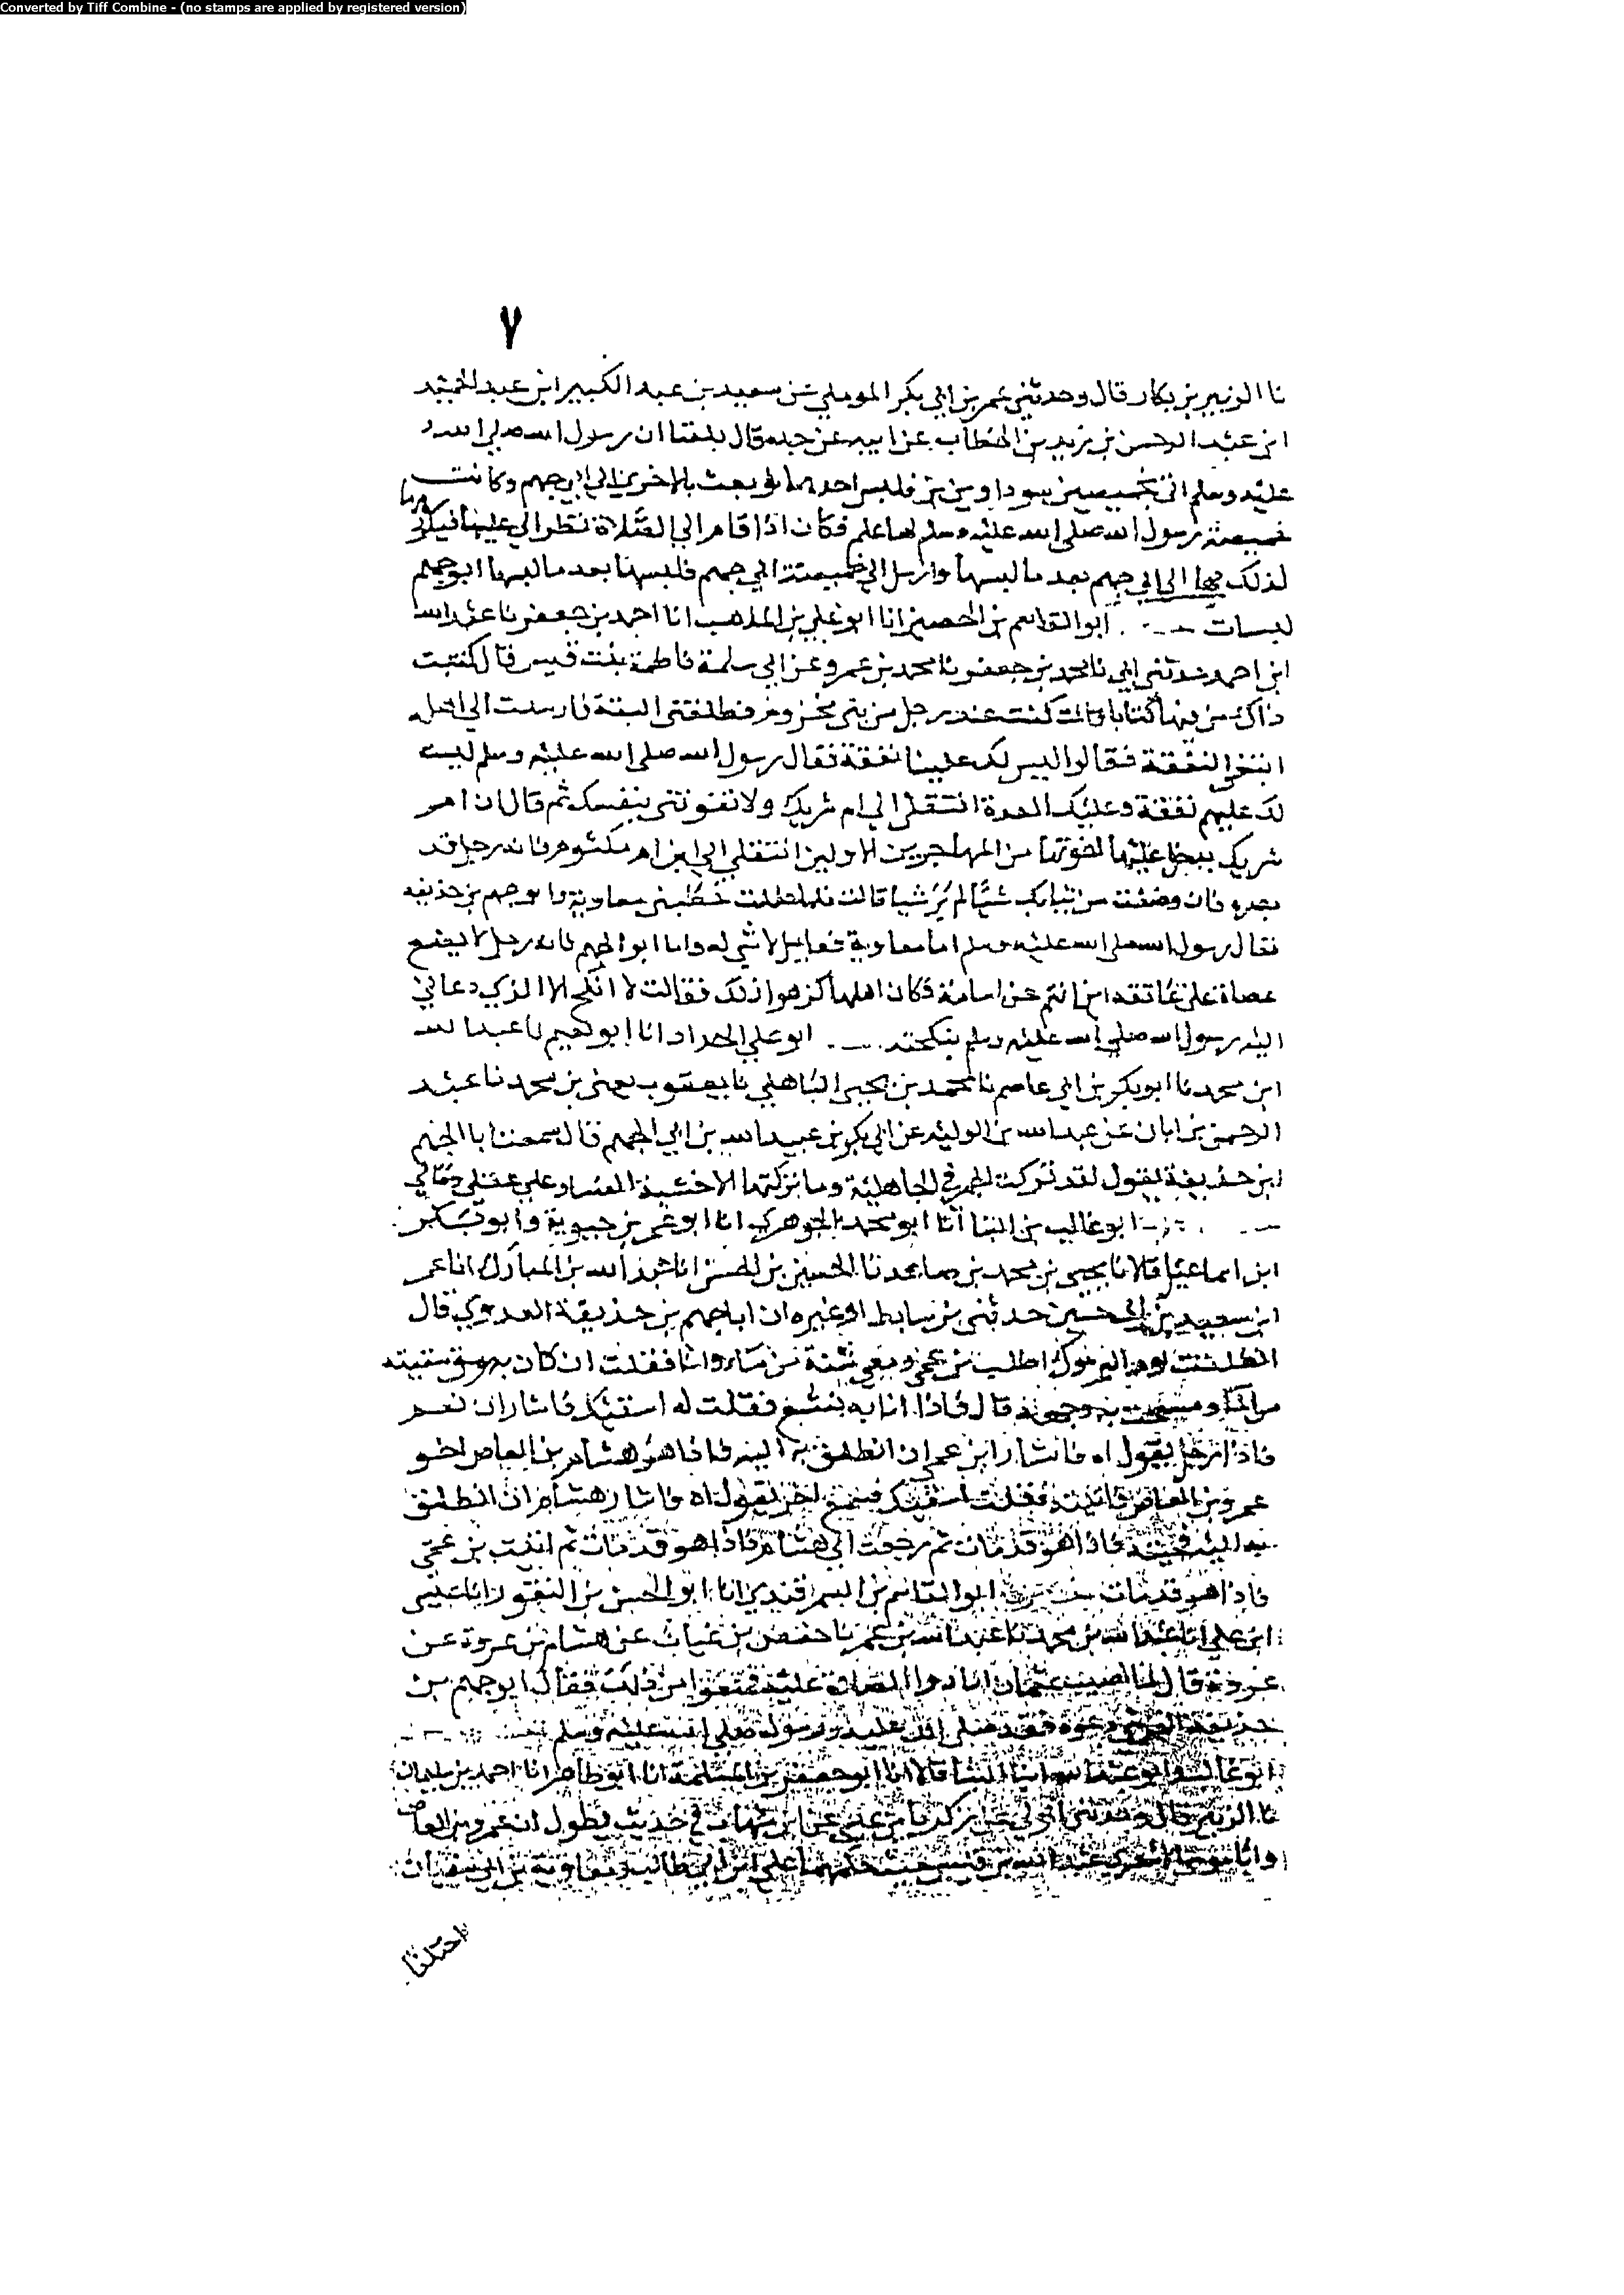 Converted by Tiff Combine - (no stamps are applied by registered version)
٧
نا الزبير بن بكار قال وحدثني عمر بن ابي بكر الموملي عن سعيد بن عبد الكبير ابن عبد الحميد
ابن عبد الرحمن بن زيد بن الخطاب عن ابيه عن جده قال بلغنا ان رسول الله صلى الله
عليه وسلم اتى بخميصتين سوداوين فلبس احدهما وبعث بالاخرى الى ابي جهم وكانت
خميصة رسول الله صلى الله عليه وسلم لها علم فكان اذا قام الي الصلاة نظر الي علمها فيكره
لذلك فبعث بها الى ابي جهم بعد ما لبسها وارسل الي خميصة ابي جهم فلبسها بعد ما لبسها ابو جهم
لبسات ابو القاسم بن الحصين انا ابو علي بن المذهب انا احمد بن جعفر نا عبد الله
ابن احمد حدثني ابي نا محمد بن جعفر نا محمد بن عمرو عن ابي سلمة فاطمة بنت قيس قال كتبت
ذاك من فيها كتابا وقالت كنت عند رجل من بني مخزوم فطلقني البتة فارسلت الي اهله
ابتغي النفقة فقالوا ليس لك علينا نفقة فقال رسول الله صلى الله عليه وسلم ليست
لك عليهم نفقة وعليك العدة انتقلي الي ام شريك ولا تفوتني بنفسك ثم قال ان ام
شريك يدخل عليها اخوتها من المهاجرين الاولين انتقلي الي ابن ام مكتوم فانه رجل قد
بصره فان وضعت من ثيابك شيا لم ير شيا قالت فلما حللت خطبني معاوية وابو جهم بن حذيفة
فقال رسول الله صلى الله عليه وسلم اما معاوية فعايل لا شي له واما ابو الجهم فانه رجل لا يضع
عصاه على عاتقه اين انتم عن اسامة فكان اهلها كرهوا ذلك فقالت لا انكح الا الذي دعاني
اليه رسول الله صلى الله عليه وسلم فنكحته ابو علي الحداد انا ابو نعيم نا عبد الله
ابن محمد نا ابو بكر بن ابي عاصم نا محمد بن يحيى الباهلي نا يعقوب يعني بن محمد نا عبد
الرحمن بن ابان عن عبد الله بن الوليد عن ابي بكر بن عبيد الله بن ابي الجهم قال سمعت ابا الجهم
ابن حذيفة يقول لقد تركت الخمر في الجاهلية وما تركتها الا خشية الفساد على عقلي ومالي
ابو غالب بن البنا انا ابو محمد الجوهري انا ابو عمر بن حيوية وابو بكر
ابن اسماعيل قالا نا يحيى بن محمد بن صاعد نا الحسين بن الحسن انا عبد الله بن المبارك انا عمر
ابن سعيد بن ابي حسين حدثني بن سابط او غيره ان ابا جهم بن حذيفة العدوي قال
انطلقت يوم اليرموك اطلب بن عمي ومعي شنة من ماء وانا فقلت ان كان به رمق سقيته
من الماء ومسحت به وجهه قال فاذا انا به ينشغ فقلت له اسقيك فاشار ان نعم
فاذا رجل يقول اه فاشار ابن عمي ان انطلق به اليه فاذا هو هشام بن العاص اخو
عمرو بن العاص فاتيته فقلت اسقيك فسمع اخر يقول اه فاشار هشام ان انطلق
به اليه فجيته فاذا هو قد مات ثم رجعت الي هشام فاذا هو قد مات ثم اتيت بن عمي
فاذا هو قد مات ابو القاسم بن السمرقندي انا ابو الحسين بن النقور انا عيسى
ابن علي انا عبد الله بن محمد نا عبد الله بن عمر نا حفص بن غياث عن هشام بن عروة عن
عروة قال لما اصيب عثمان ارادوا الصلاة عليه فمنعوا من ذلك فقال ابو جهم بن
حذيفة دعوه فقد صلى الله عليه ورسوله صلى الله عليه وسلم
ابو غالب وابو عبد الله ابنا البنا قالا انا ابو جعفر بن المسلمة انا ابو طاهر انا احمد بن سليمان
نا الزبير قال وحدثني عن ابن شهاب في حديث يطول ان عمرو بن العاص
وابا موسى الاشعري عبد الله بن قيس حيث حكمهما علي بن ابي طالب ومعاوية بن ابي سفيان
احتلفا